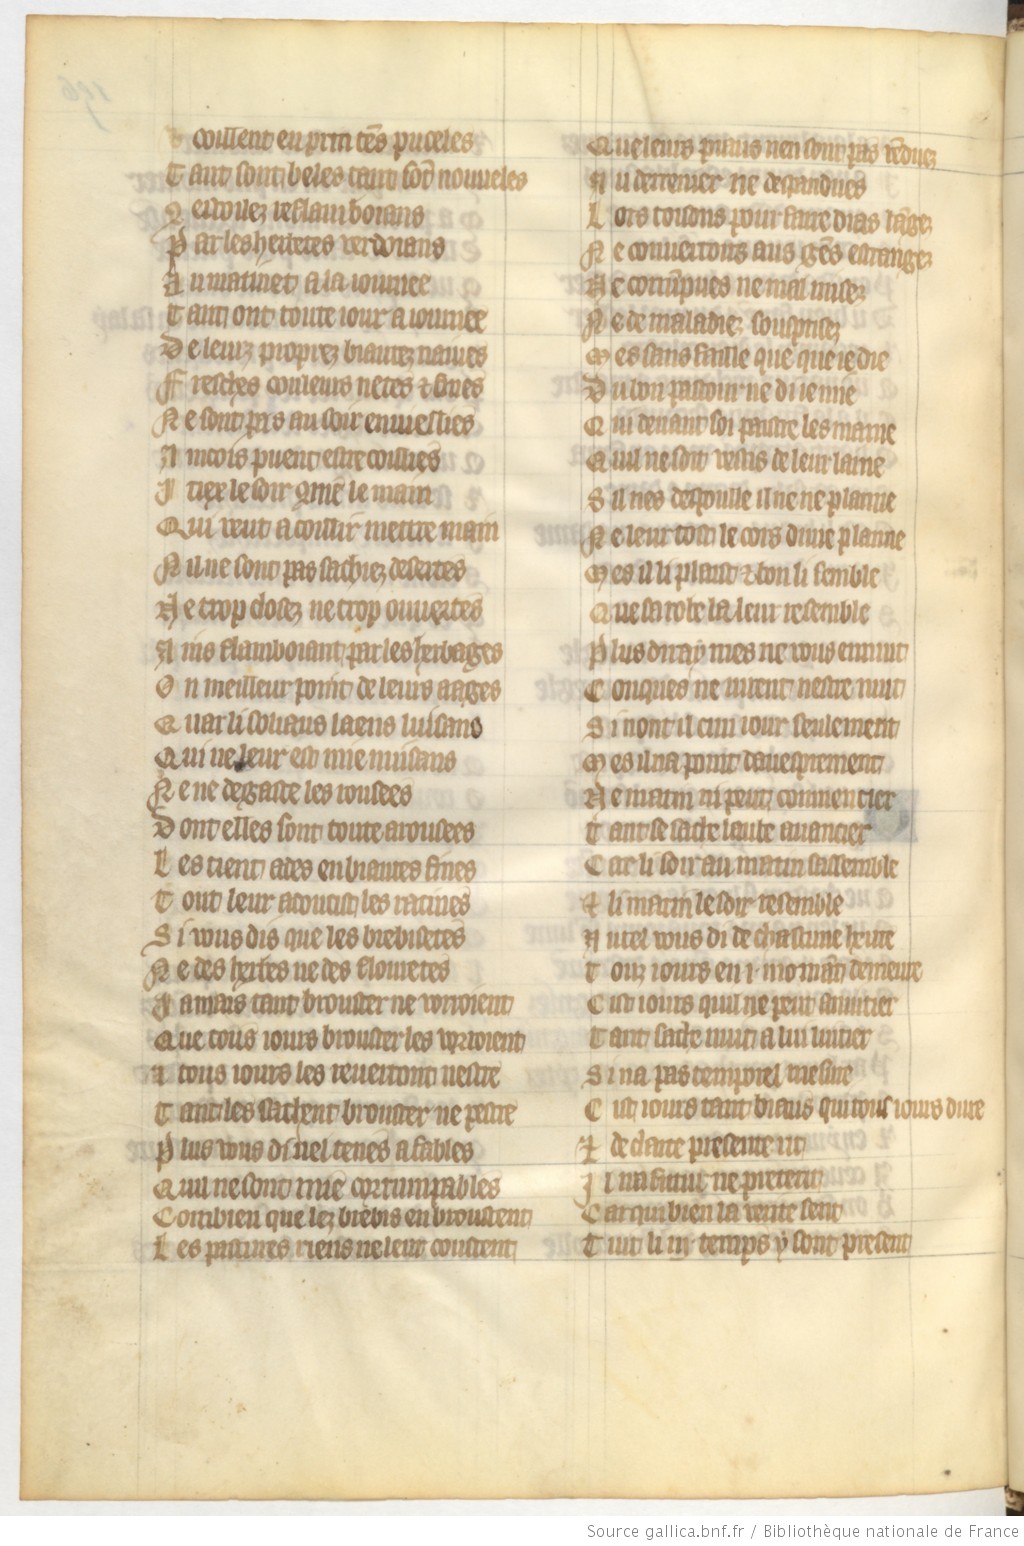 coillent en prin tēs puceles
Tant sont beles tant sōt nouveles
Par les herbetes verdoians
Au matinet a la iournee
Tant ont toute iour a iournee
De leurz proprez biautez naives
Fresches couleurs netes & vives
Ne sont pas au soir envieillies
Aincois pueent estre coillies
Itiex le soir 9me le main
Qui veut a coillir mettre main
Nil ne sont pas sachiez desertes
Ne trop closez ne trop ouvertes
Ains flamboiant par les herbages
On meilleur point de leurs aages
Quar li soliaus laens luisans
Qui ne leur est mie nuisans
Ne ne degaste les rousees
Dont elles sont toute arousees
Les tient ades en biautes fines
Tout leur adoucist les racines
Si vous dis que les brebisetes
Ne des herbes ne des flouretes
Iamais tant brouster ne porroient
Que tous iours brouster les vorroient
tous iours les reverront nestre
Tant les sachent brouster ne pestre
Plus vous di nel tenes a fables
Quil ne sont mie corrumpables
Combien que lez brebis en broustent
Les pastures riens ne leur coustent
Que leurs piaus nen sont pas vēdues
Au derrenier ne despandues
Lors toisons pour faire dras
Ne convertoirs aus gēs estranges
Ne corrūpues ne mal misez
Ne de maladiez sousprisez
Mes sans faille que que ie die
Du bon pastour ne di ie mie
Qui devant soi paistre les maine
Quil ne soit vestis de leur laine
Sil nes despoulle il ne ne plaune
Ne leur tost le cors dune plaune
Mes il li plaist & bon li semble
Que sa robe la leur resemble
Plus diray mes ne vous ennuit
Conques ne nirent nestre nuit
Si nont il cun iour seulement
Mes il na point davesprement
Ne matin ni puet commencier
Tant se sache laube avancier
Car li soir au matin sassemble
& li matin le soir resemble
Autel vous di de chascune heure
Touz iours en i momāt demeure
Cist iours quil ne puet anuitier
Tant sache nuit a lui luitier
Si na pas temporel mesure
Cist iours tant biaus qui tous iours dure
& de clarte presente rit
Il na futur ne preterit
Car qui bien la verite sent
Tuit li iii temps y sont present
Source gallica.bnf.fr / Bibliothèque nationale de France